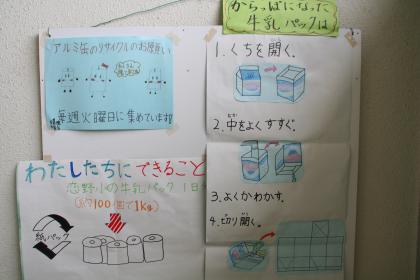 からっぽになった
牛乳パックは
アルミ缶のリサイクルのお願い
毎週火曜日に集めています。
1.くちを開く。
2.中をよくすすぐ。
3.よくかわかす。
4.切り開く。
わたしたちにできること
恋野小の牛乳パック 1日分
(約100個で1kg)
紙パック